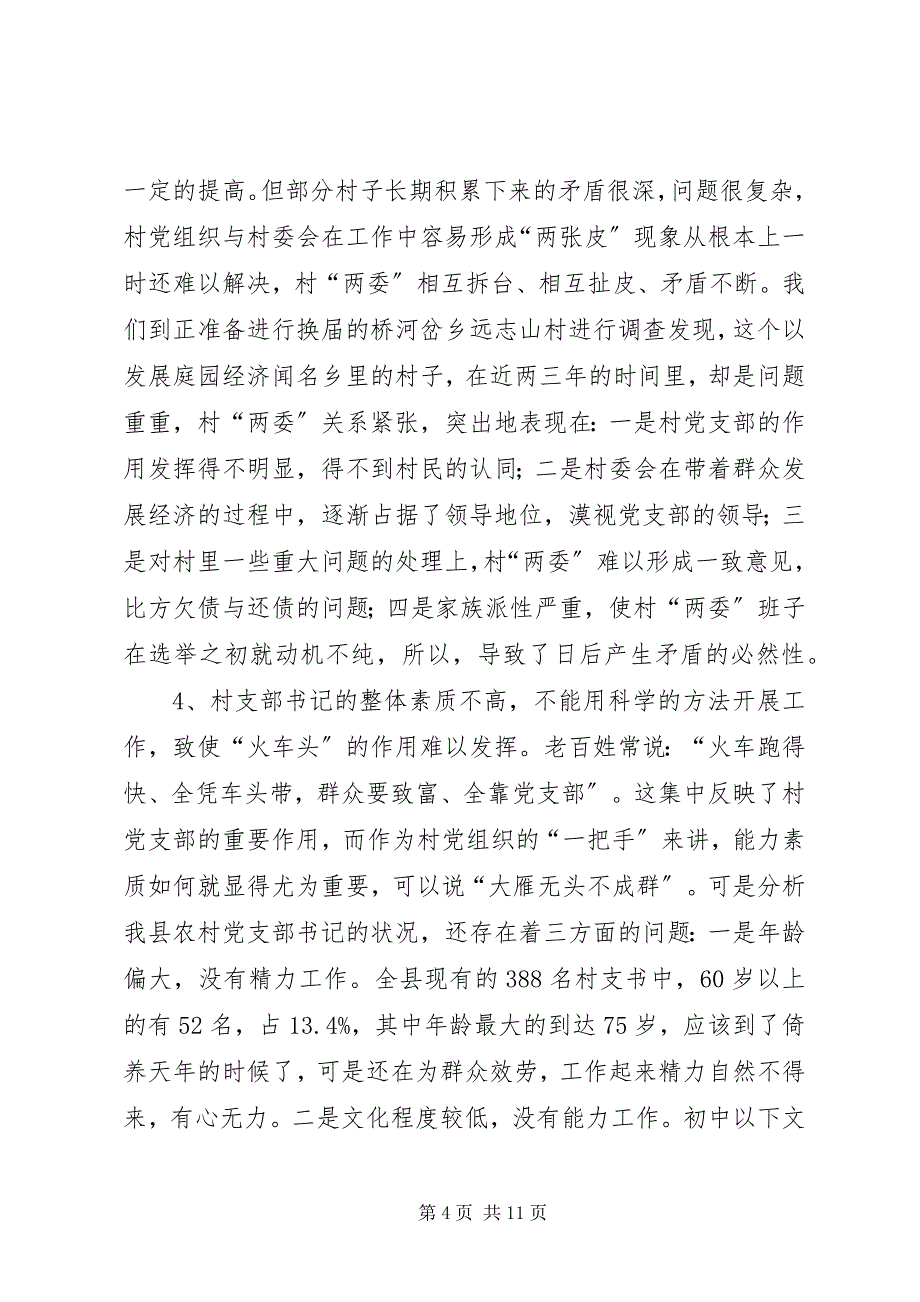 一定的提高。但部分村子长期积累下来的矛盾很深，问题很复杂，
村党组织与村委会在工作中容易形成“两张皮〞现象从根本上一
时还难以解决，村“两委〞相互拆台、相互扯皮、矛盾不断。我
们到正准备进行换届的桥河岔乡远志山村进行调查发现，这个以
发展庭园经济闻名乡里的村子，在近两三年的时间里，却是问题
重重，村“两委〞关系紧张，突出地表现在：一是村党支部的作
用发挥得不明显，得不到村民的认同；二是村委会在带着群众发
展经济的过程中，逐渐占据了领导地位，漠视党支部的领导；三
是对村里一些重大问题的处理上，村“两委〞难以形成一致意见，
比方欠债与还债的问题；四是家族派性严重，使村“两委〞班子
在选举之初就动机不纯，所以，导致了日后产生矛盾的必然性。
4、村支部书记的整体素质不高，不能用科学的方法开展工
作，致使“火车头〞的作用难以发挥。老百姓常说：“火车跑得
快、全凭车头带，群众要致富、全靠党支部〞。这集中反映了村
党支部的重要作用，而作为村党组织的“一把手〞来讲，能力素
质如何就显得尤为重要，可以说“大雁无头不成群〞。可是分析
我县农村党支部书记的状况，还存在着三方面的问题：一是年龄
偏大，没有精力工作。全县现有的 388 名村支书中，60 岁以上
的有 52 名，占 13.4%，其中年龄最大的到达 75 岁，应该到了倚
养天年的时候了，可是还在为群众效劳，工作起来精力自然不得
来，有心无力。二是文化程度较低，没有能力工作。初中以下文
第 4 页 共 11 页